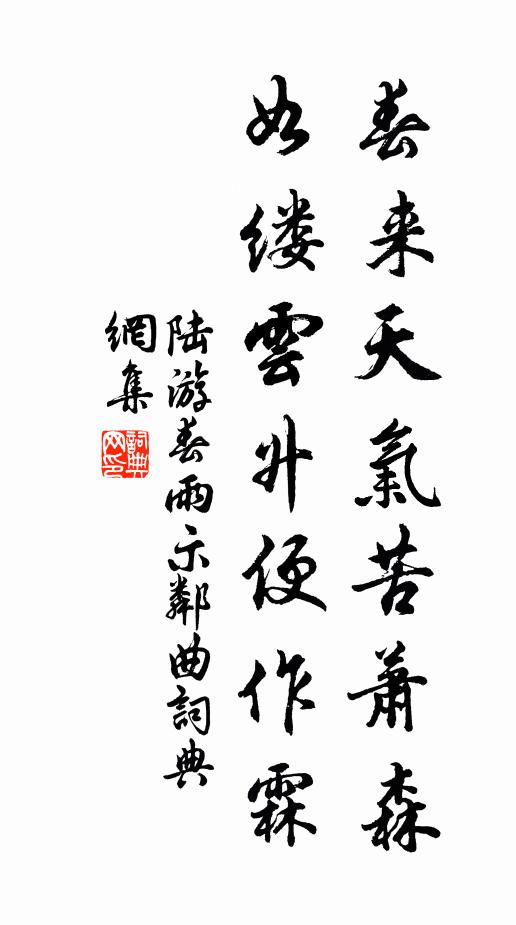 春来天氣苦蕭森
如缕雲升便作霖
陆游春雨示鄰曲詞典
網集
詞典網印